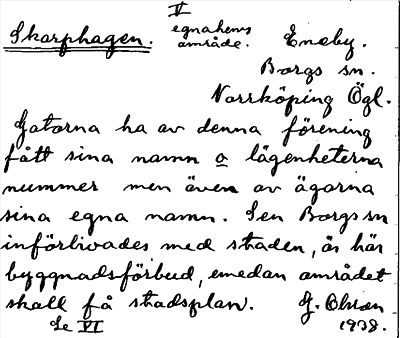 V
Skarphagen. egnahems
område. Eneby.
Borgs sn.
Norrköping Ögl.
Gatorna ha av denna förening
fått sina namn o lägenheterna
nummer men även av ägarna
sina egna namn. Sen Borgs sn
införlivades med staden, är här
byggnadsförbud, emedan området
skall få stadsplan. G. Olsson
Se VI 1938.